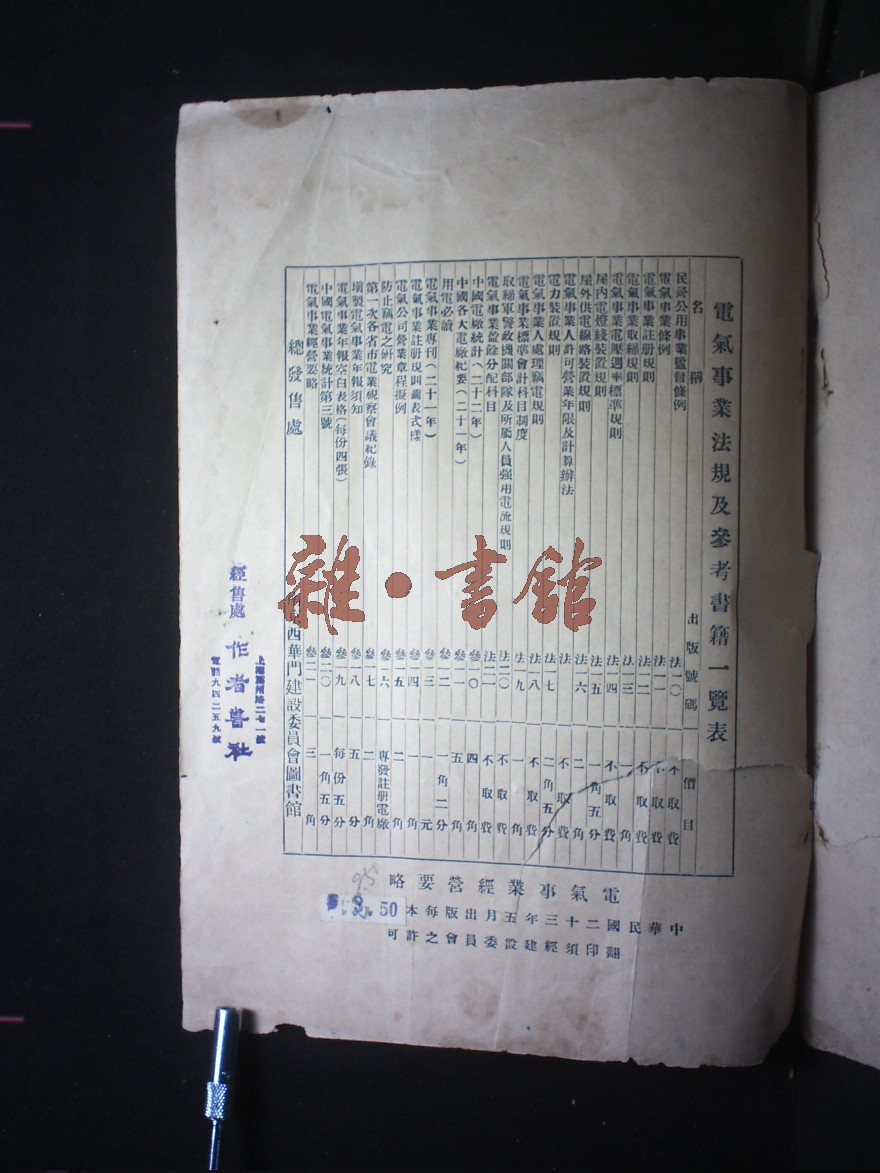 電氣事業法規及參考書籍一覽表
名稱 出版號碼 價目
民營公用事業監督條例 法一〇 不取費
電氣事業條例 法一一 不取費
電氣事業註册規則 法一二 不取費
電氣事業取締規則 法一三 一角
電氣事業電壓週率標準規則 法一四 不取費
屋內電燈線裝置規則 法一五 一角五分
屋外供電線路裝置規則 法一六 二角
電氣事業人許可營業年限及計算辦法 法 不取費
電力裝置規則 法一七 二角五分
電氣事業人處理竊電規則 法一八 不取費
電氣事業標準會計科目制度 法九 一角
取締軍警政機關部隊及所屬人員强用電流規則 法二〇 不取費
電氣事業盈餘分配科目 法二一 不取費
中國電廠統計(二十二年) 參一〇 四角
中國各大電廠紀要(二十一年) 參一一 五角
用電必讀 參二 一角二分
電氣事業專刊(二十一年) 參三 一元
電氣事業註册規則圖表式樣 參一四 一角
電氣公司營業章程擬例 參五 二角
防止竊電之研究 參六 專發註册電廠
第一次各省市電業視察會議紀錄 參一七 二角
塡製電氣事業年報須知 參一八 五分
電氣事業年報空白表格(每份四張) 參一九 每份五分
中國電氣事業統計第三號 參二〇 一角五分
電氣事業經營要略 參二一 三角
總發售處 西華門建設委員會圖書館
經售處 作者書社
上海福州路二七一號
電話九四二五九號
雜·書館
電氣事業經營要略
中華民國二十三年五月出版每本
翻印須經建設委員會之許可
95
3.50